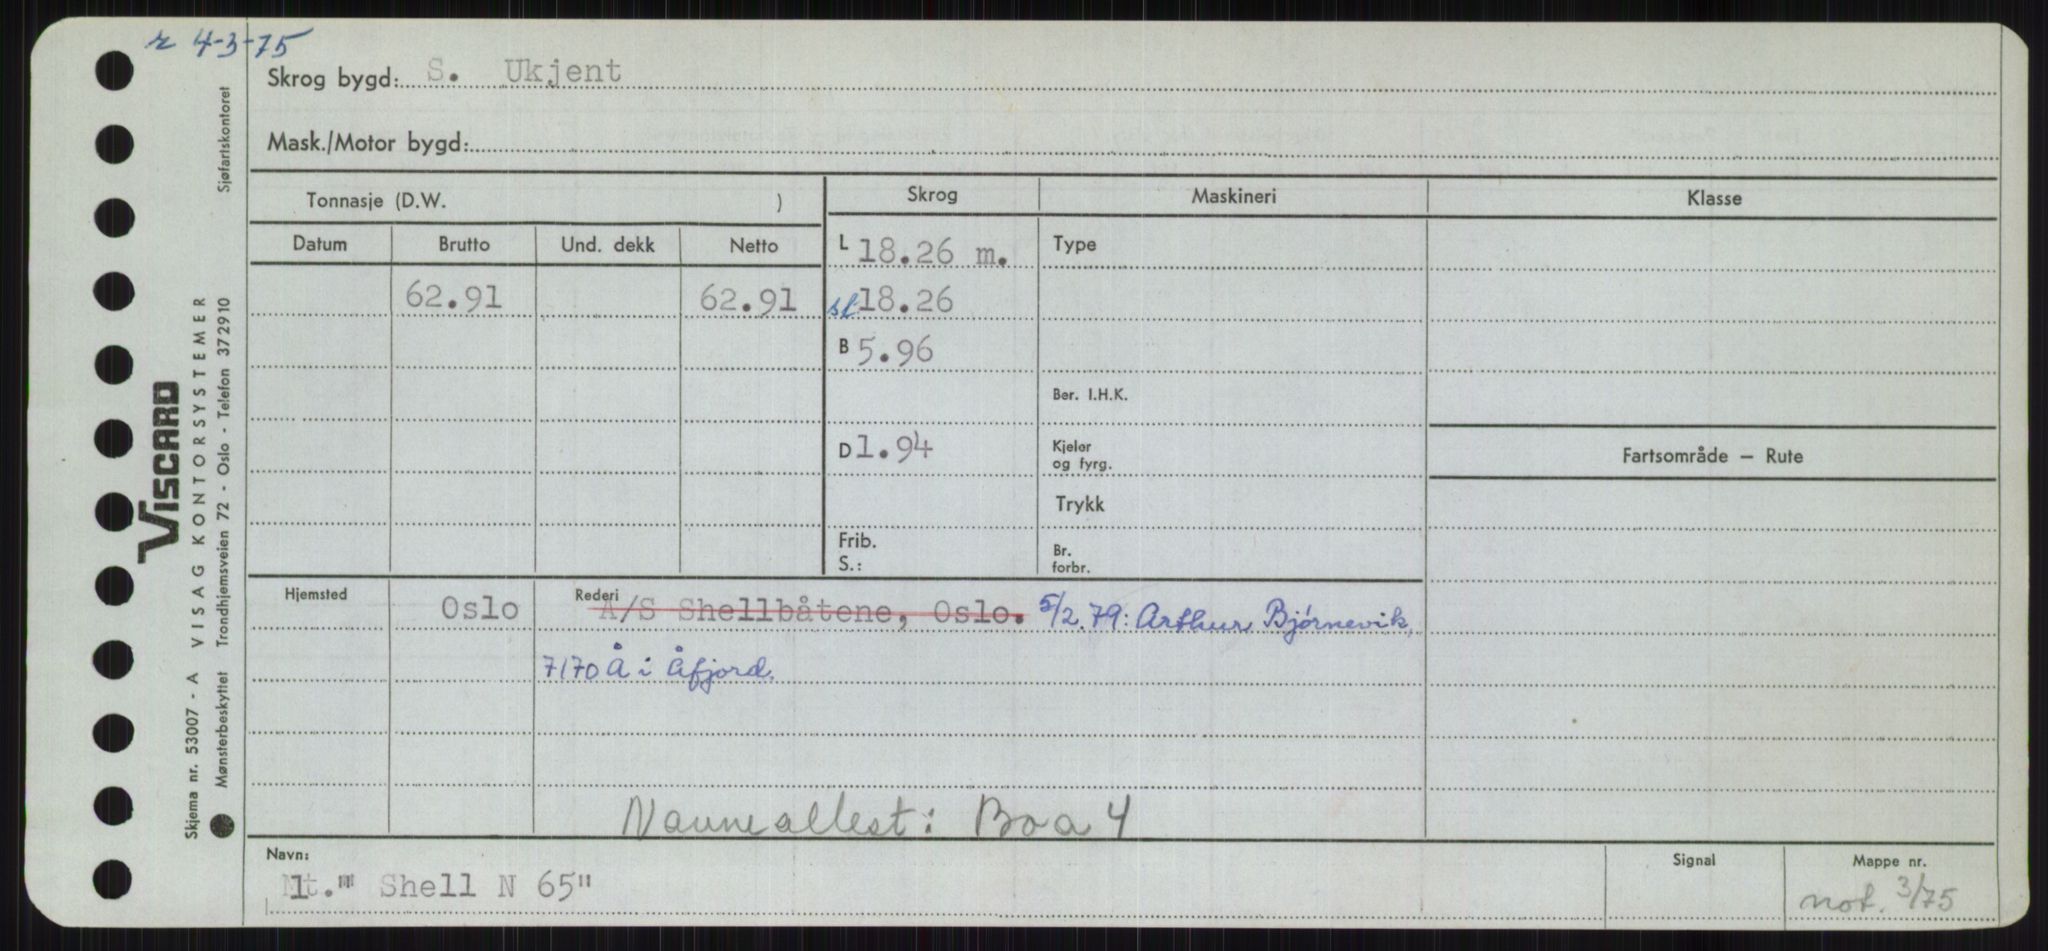 r 4-3-75
Skrog bygd: S. Ukjent
Mask./Motor bygd:
Tonnasje (D.W. )
Skrog
Maskineri
Klasse
Datum
Brutto
Und. dekk
Netto
L 18.26 m.
Type
62.91
62.91
st 18.26
B 5.96
Ber. I.H.K.
D 1.94
Kjeler
og fyrg.
Fartsområde — Rute
Trykk
Frib.
S.:
Br.
forbr.
Hjemsted
Oslo
Rederi
A/S Shellbåtene, Oslo. 5/2.79: Arthur Bjørnevik,
7170 Å i Åfjord.
Navneallest: Boa 4
Navn:
"Shell N 65"
Signal
Mappe nr.
not. 3/75
VISCARD
VISAG KONTORSYSTEMER
Skjema nr. 53007 - A
Sjøfartskontoret
Trondhjemsveien 72 - Oslo - Telefon 372910
Mønsterbeskyttet